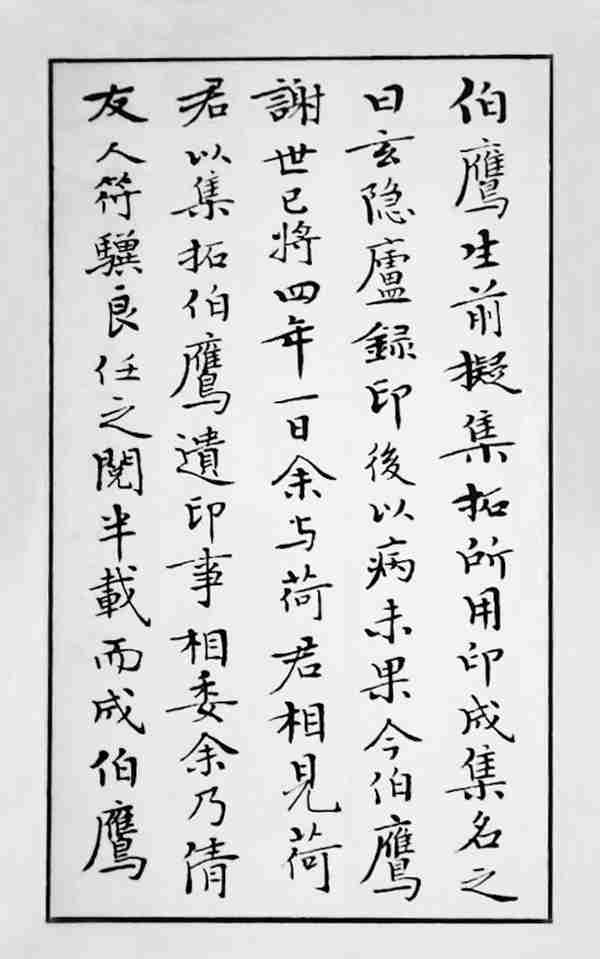 伯鷹生前擬集拓所用印成集名之
曰玄隐廬録印後以病未果今伯鷹
謝世已将四年一日余与荷君相見荷
君以集拓伯鷹遺印事相委余乃倩
友人符驥良任之閱半載而成伯鷹